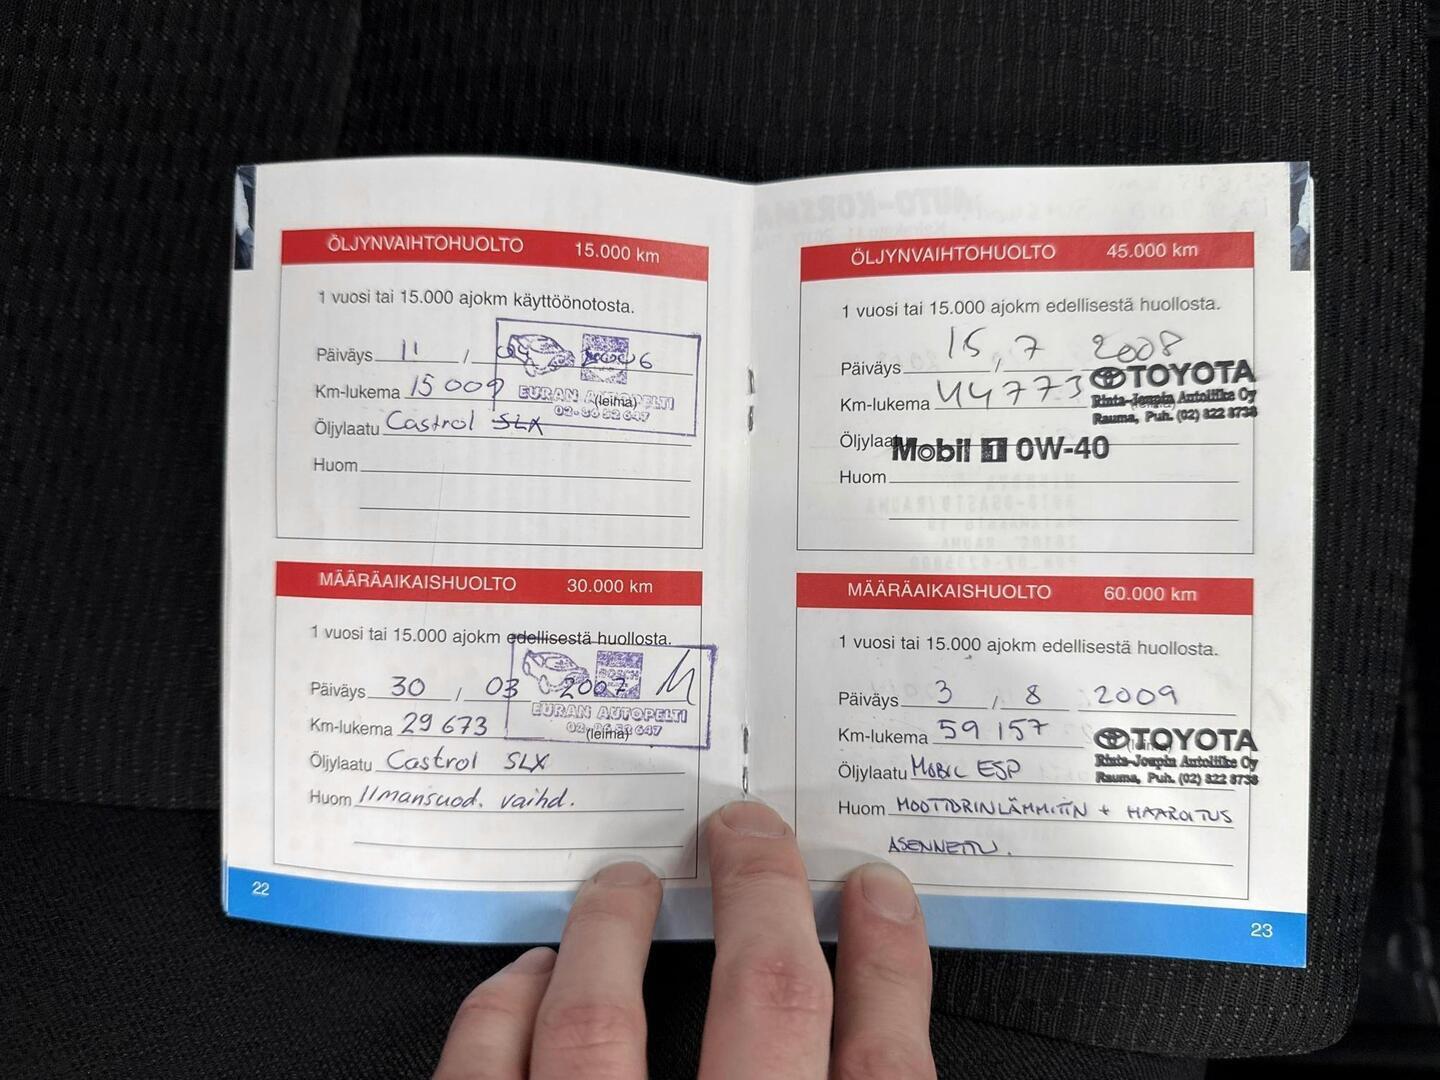 ÖLJYNVAIHTOHUOLTO 15.000 km
1 vuosi tai 15.000 ajokm käyttöönotosta.
Päiväys 11 / 6
Km-lukema 15 009
(leima)
EURAN AUTOPELTI
02-8652647
Öljylaatu Castrol SLX
Huom
MÄÄRÄAIKAISHUOLTO 30.000 km
1 vuosi tai 15.000 ajokm edellisestä huollosta.
Päiväys 30 / 03 2007
BOSCH
Km-lukema 29 673
EURAN AUTOPELTI
02-8652647
(leima)
Öljylaatu Castrol SLX
Huom Ilmansuod. vaihd.
22
ÖLJYNVAIHTOHUOLTO 45.000 km
1 vuosi tai 15.000 ajokm edellisestä huollosta.
Päiväys 15 , 7 2008
Km-lukema 44773
TOYOTA
Rinta-Joupin Autoliike Oy
Rauma, Puh. (02) 822 8738
Öljylaatu Mobil 1 0W-40
Huom
MÄÄRÄAIKAISHUOLTO 60.000 km
1 vuosi tai 15.000 ajokm edellisestä huollosta.
Päiväys 3 , 8 2009
Km-lukema 59 157
TOYOTA
Rinta-Joupin Autoliike Oy
Rauma, Puh. (02) 822 8738
Öljylaatu MOBIL ESP
Huom MOOTTORINLÄMMITIN + HAAROITUS
ASENNETTU.
23